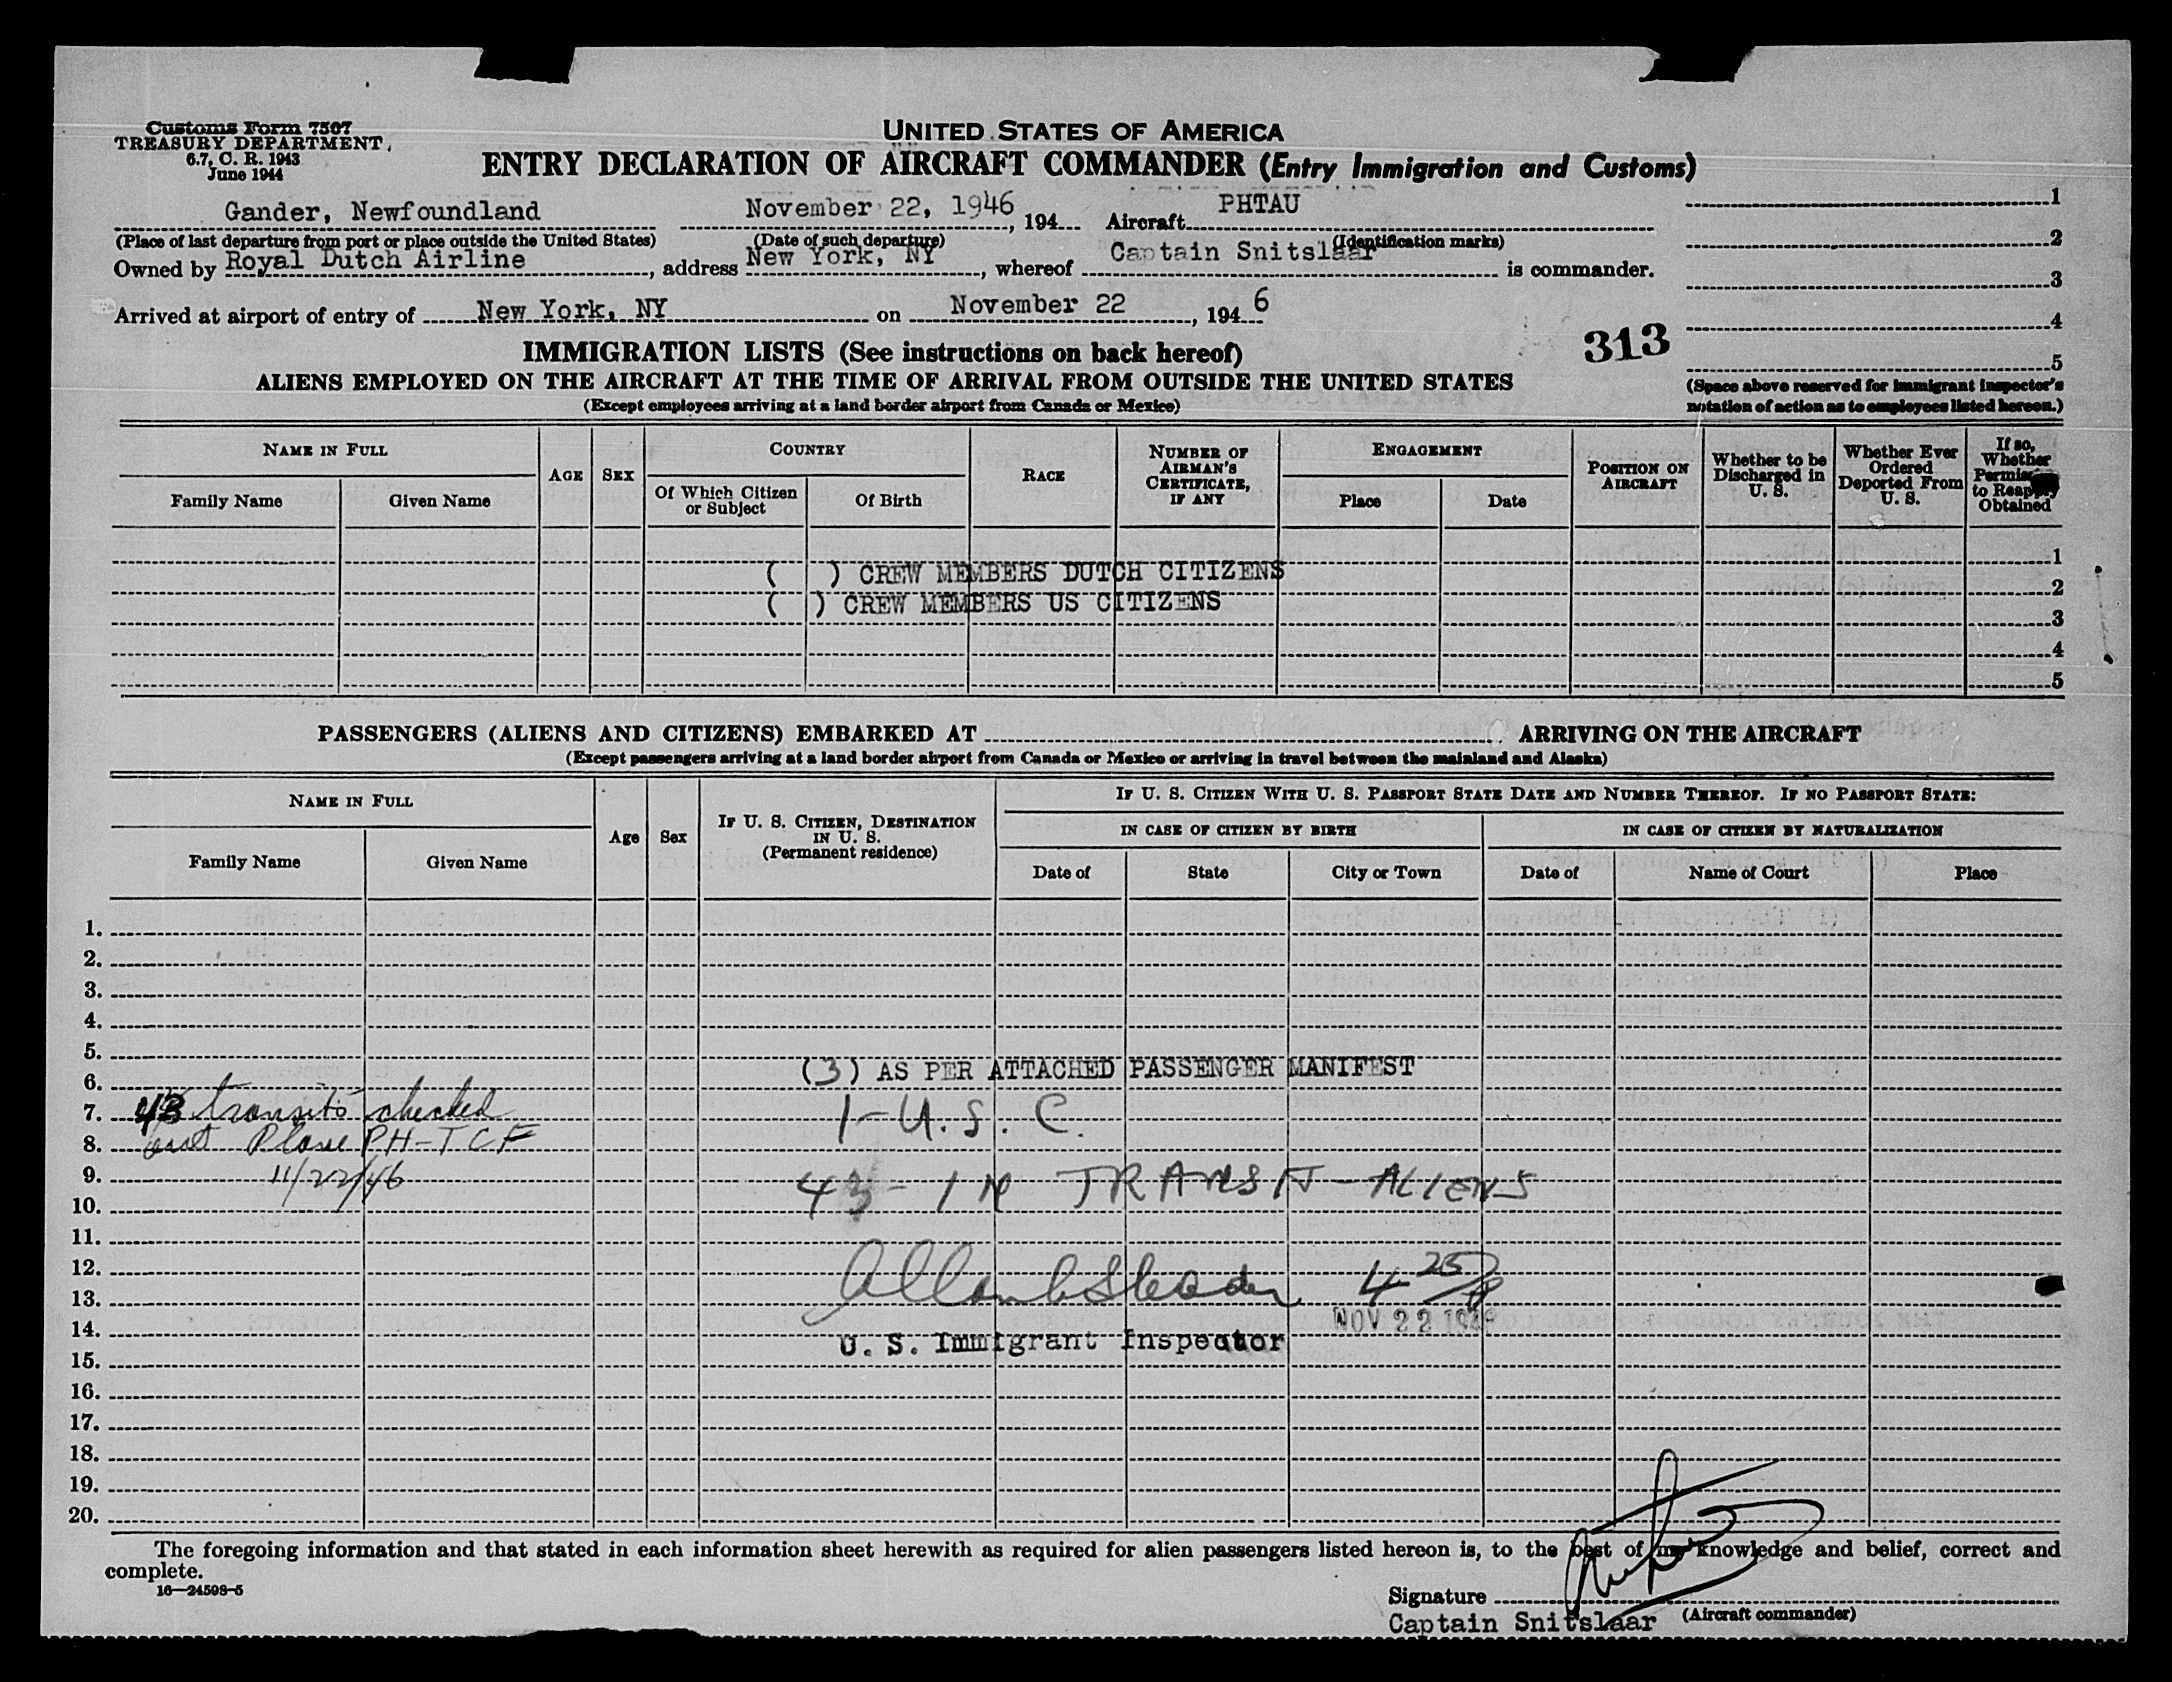 Customs Form 7507
TREASURY DEPARTMENT
6.7, C. R. 1943
June 1944
UNITED STATES OF AMERICA
ENTRY DECLARATION OF AIRCRAFT COMMANDER (Entry Immigration and Customs)
Gander, Newfoundland November 22, 1946, 194 Aircraft PHTAU
(Place of last departure from port or place outside the United States) (Date of such departure) (Identification marks)
Owned by Royal Dutch Airline, address New York, NY, whereof Captain Snitslaar is commander.
Arrived at airport of entry of New York, NY on November 22, 1946
1
2
3
4
5
313
(Space above reserved for immigrant inspector's notation of action as to employees listed hereon.)
IMMIGRATION LISTS (See instructions on back hereof)
ALIENS EMPLOYED ON THE AIRCRAFT AT THE TIME OF ARRIVAL FROM OUTSIDE THE UNITED STATES
(Except employees arriving at a land border airport from Canada or Mexico)
NAME IN FULL
Family Name Given Name
AGE SEX
COUNTRY
Of Which Citizen or Subject Of Birth
RACE
NUMBER OF AIRMAN'S CERTIFICATE, IF ANY
ENGAGEMENT
Place Date
POSITION ON AIRCRAFT
Whether to be Discharged in U. S.
Whether Ever Ordered Deported From U. S.
If so, Whether Permission to Reapply Obtained
1
( ) CREW MEMBERS DUTCH CITIZENS
2
( ) CREW MEMBERS US CITIZENS
3
4
5
PASSENGERS (ALIENS AND CITIZENS) EMBARKED AT ARRIVING ON THE AIRCRAFT
(Except passengers arriving at a land border airport from Canada or Mexico or arriving in travel between the mainland and Alaska)
NAME IN FULL
Family Name Given Name
Age Sex
IF U. S. CITIZEN, DESTINATION IN U. S. (Permanent residence)
IF U. S. CITIZEN WITH U. S. PASSPORT STATE DATE AND NUMBER THEREOF. IF NO PASSPORT STATE:
IN CASE OF CITIZEN BY BIRTH IN CASE OF CITIZEN BY NATURALIZATION
Date of State City or Town Date of Name of Court Place
1.
2.
3.
4.
5.
(3) AS PER ATTACHED PASSENGER MANIFEST
6.
7. 43 transits checked 1-U.S.C.
8. out Plane PH-TCF
9. 11/22/46 43 - IN TRANSIT - ALIENS
10.
11.
12. 4 25 p
13.
NOV 22 1946
14. U. S. Immigrant Inspector
15.
16.
17.
18.
19.
20.
The foregoing information and that stated in each information sheet herewith as required for alien passengers listed hereon is, to the best of my knowledge and belief, correct and
complete.
16—24598-5
Signature
Captain Snitslaar (Aircraft commander)